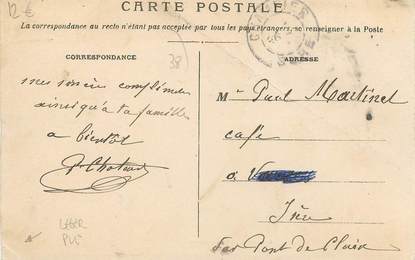 12 €
CARTE POSTALE
La correspondance au recto n'étant pas acceptée par tous les pays étrangers, se renseigner à la Poste
CORRESPONDANCE
38
mes compliments
ainsi qu'à ta famille
a bientot
ADRESSE
Mr Paul Martinet
café
a
Isère
Par Pont de Claix
LEGER
PLI